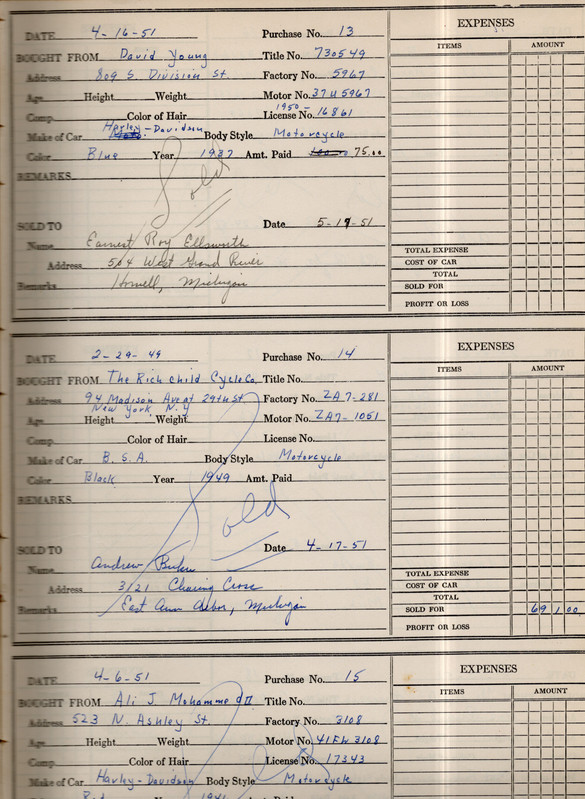 DATE 4-16-51 Purchase No. 13
BOUGHT FROM David Young Title No. 730549
Address 809 S. Division St. Factory No. 5967
Age Height Weight Motor No. 37U5967
Comp. Color of Hair License No. 1950- 16861
Make of Car Harley-Davidson Body Style Motorcycle
Color Blue Year 1937 Amt. Paid 75.00
REMARKS
Sold
SOLD TO Date 5-17-51
Name Earnest Roy Ellsworth
Address 504 West Grand River
Remarks Howell, Michigan
EXPENSES
ITEMS AMOUNT
TOTAL EXPENSE
COST OF CAR
TOTAL
SOLD FOR
PROFIT OR LOSS
DATE 2-29-49 Purchase No. 14
BOUGHT FROM The Rich child Cycle Co. Title No.
Address 94 Madison Ave at 29th St. Factory No. ZA7-281
New York, N.Y
Age Height Weight Motor No. ZA7-1051
Comp. Color of Hair License No.
Make of Car B.S.A. Body Style Motorcycle
Color Black Year 1949 Amt. Paid
REMARKS
Sold
SOLD TO Date 4-17-51
Name Andrew
Address 3121 Charing Cross
Remarks East Ann Arbor, Michigan
EXPENSES
ITEMS AMOUNT
TOTAL EXPENSE
COST OF CAR
TOTAL
SOLD FOR 691 00
PROFIT OR LOSS
DATE 4-6-51 Purchase No. 15
BOUGHT FROM Ali J. Mohammed II Title No.
Address 523 N. Ashley St. Factory No. 3108
Age Height Weight Motor No. 41FL 3108
Comp. Color of Hair License No. 17343
Make of Car Harley-Davidson Body Style Motorcycle
Color Red Year 1941 Amt. Paid
EXPENSES
ITEMS AMOUNT